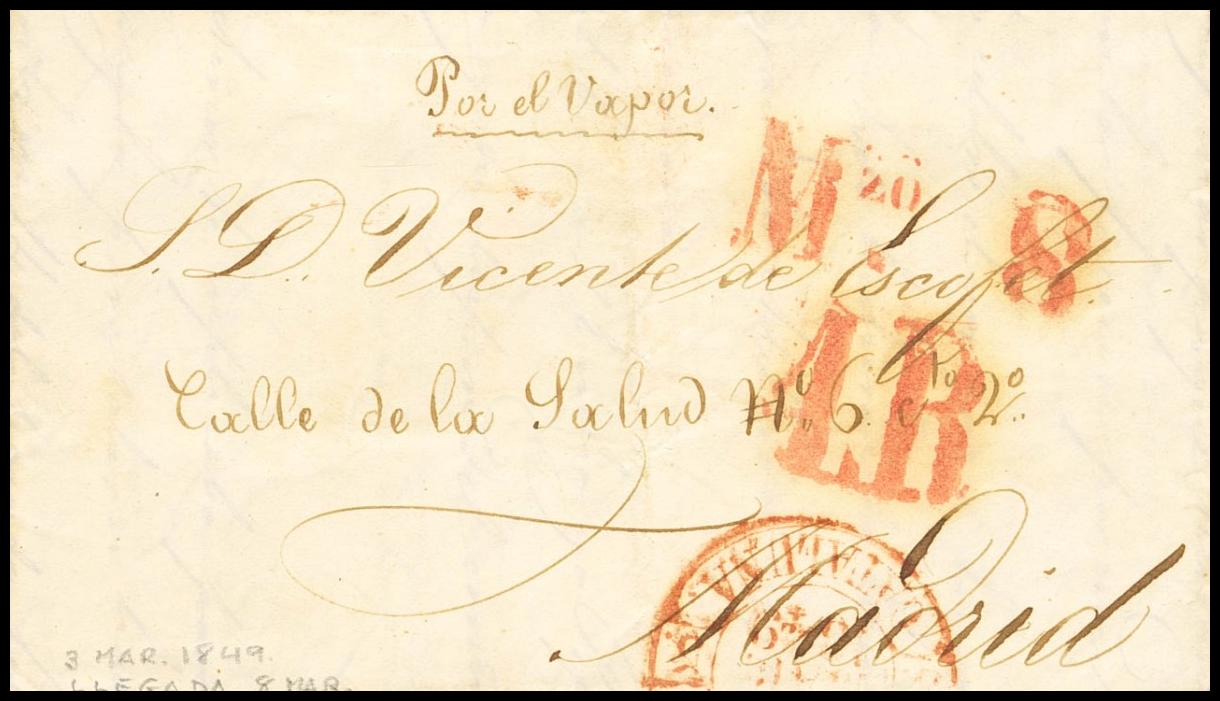 Por el Vapor.
Mzo. 8
S. D. Vicente de Escofet.
4R
Calle de la Salud No. 6. cto. 2o.
Madrid
3 MAR. 1849.
LLEGADA 8 MAR.